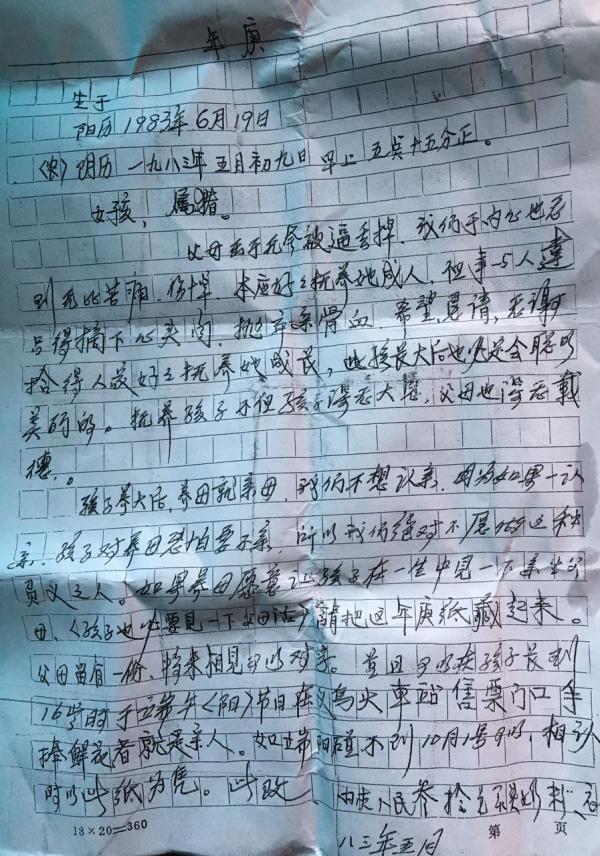 年庚
生于
阳历1983年6月19日
〈农〉阴历一九八三年五月初九日早上五点十五分正。
女孩，属猪。
父母出于无奈被逼丢掉，我们于内心也感
到无比苦痛、伤悼，本应好好抚养她成人，但事与人违
只得摘下心头肉，抛弃亲骨血，希望，恳请，感谢
拾得人最好好抚养她成长，此孩长大后也必定会聪明
美丽的。抚养孩子不但孩子得感大恩，父母也得感戴
德。
孩子养大后，养母就亲母，我们不想认亲，因为如果一认
亲，孩子对养母恐怕要不亲，所以我们绝对不愿做这种
负义之人。如果养母愿意让孩子在一生中见一下亲生父
母，〈孩子也必要见一下父母话〉请把这年庚纸藏起来。
父母留有一份，将来相见可以对亲。并且可以候孩子长到
16岁时于 〈阳〉节日在义乌火车站售票门口手
捧鲜花者就是亲人。如 碰不到10月1号 ，相认
时以此纸为凭。此致 内 人民 拾元
八三年五月
18×20=360
第 页